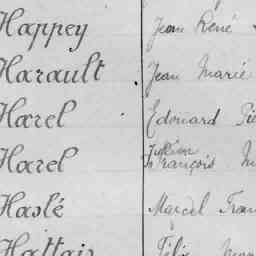 Happey Jean René
Harault Jean Marie
Harel Edouard
Harel François
Haslé Marcel
Hattais Félix